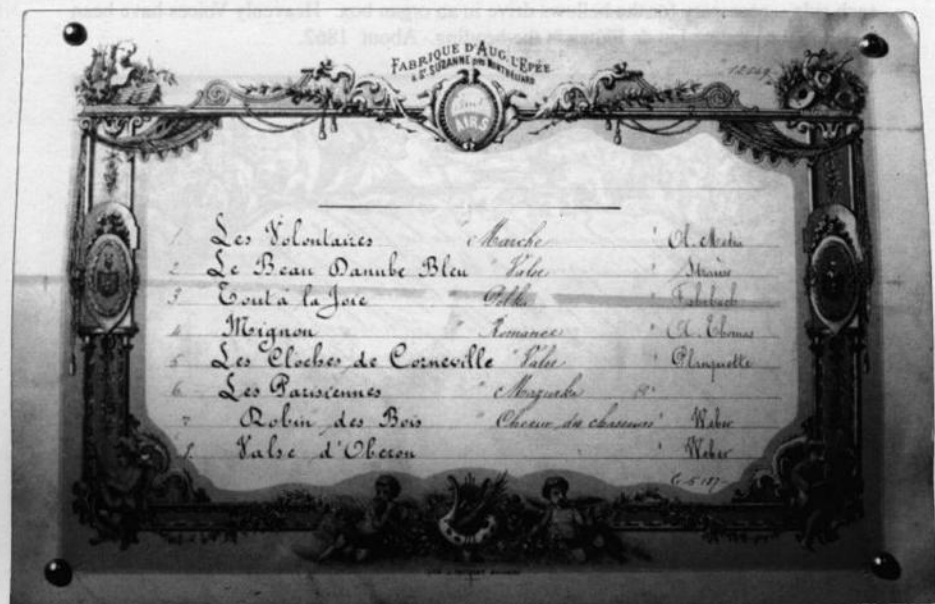 Heavenly Voices have been
About 1862.
FABRIQUE D'AUG. L'EPÉE
à Ste SUZANNE près MONTBÉLIARD
AIRS
1. Les Volontaires " Marche " O. Metra
2. Le Beau Danube Bleu " Valse " Strauss
3. Tout à la Joie " Polka " Fahrbach
4. Mignon " Romance " A. Thomas
5. Les Cloches de Corneville " Valse " Planquette
6. Les Parisiennes " Mazurka
7. Robin des Bois " Choeur des chasseurs " Weber
8. Valse d'Oberon " Weber